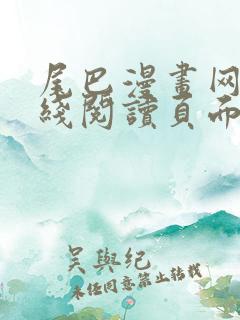 尾巴漫畫网
綫閱讀頁而
吴與纪
未經同意禁止轉載